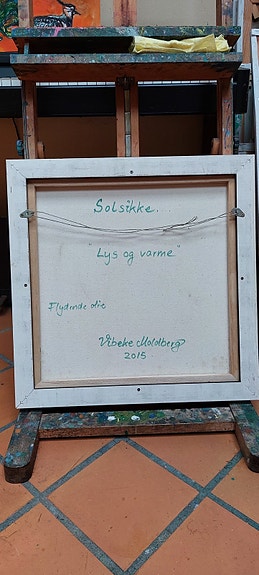 Solsikke.
"Lys og varme"
Flydende olie
Vibeke Moldberg
2015